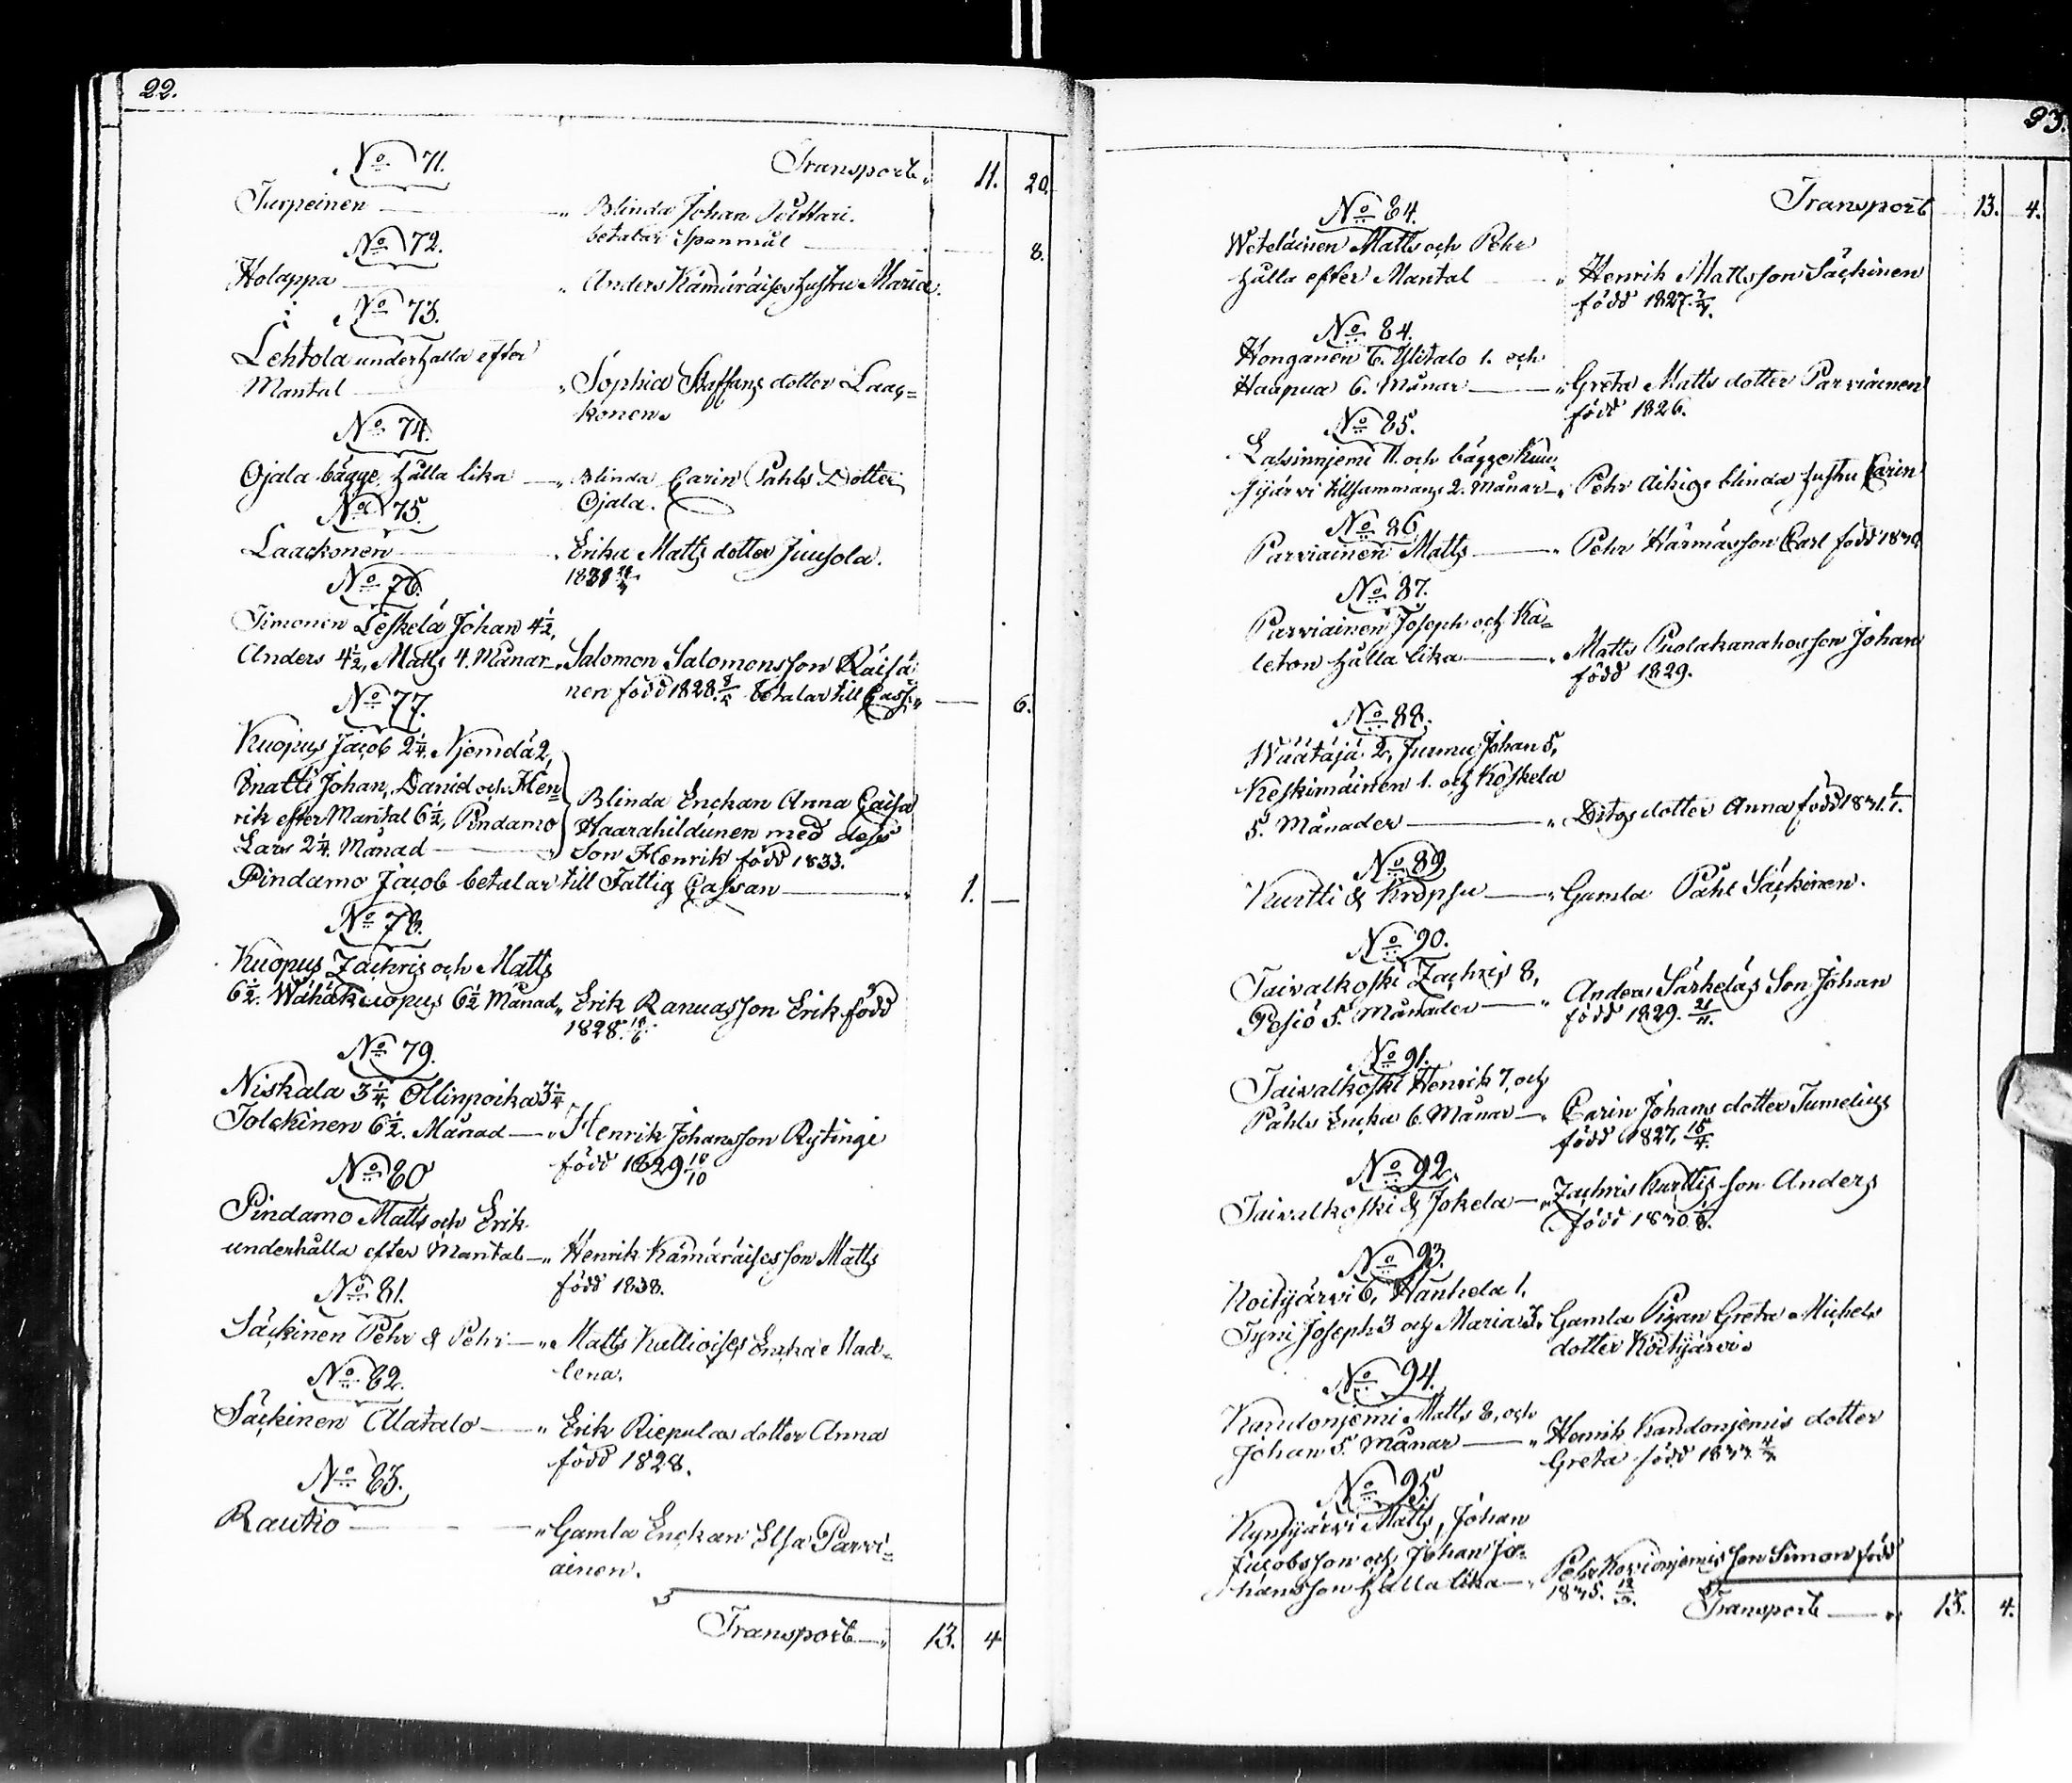 22.
No 71. Transport 11. 20.
Turpeinen — Blinda Johan Polttari.
No 72. betalar Spanmål — 8.
Holappa — Anders Kämäräises hustru Maria.
No 73.
Lehtola underhålla efter
Mantal — Sophia Staffans dotter Laac-
konen.
No 74.
Ojala bägge hålla lika — Blinda Carin Påhls Dotter
Ojala.
No 75.
Laackonen — Erika Matts dotter Juusola.
No 76.
Timonen Leskelä Johan 4½,
Anders 4½, Matts 4. Månar — Salomon Salomonsson Räisä-
nen född 1828. betalar till Cass. — 6.
No 77.
Kuopus Jacob 2¼, Njemelä 2,
Johan, David och Hen-
rik efter Mantal 6½, Pindamo
Lars 2¼. Månad —
Blinda Enckan Anna Caisa
Haarahildunen med dess
Son Henrik född 1833.
Pindamo Jacob betalar till Fattig Cassan — 1. —
No 78.
Kuopus Zachris och Matts
6½. Wähäkuopus 6½ Månad — Erik Ranuas son Erik född
1828.
No 79.
Niskala 3¼, Ollinpoika 3¼
Tolckinen 6½. Månad — Henrik Johansson Rytinge
född 1829 10/10
No 80
Pindamo Matts och Erik
underhålla efter Mantal — Henrik Kämäräises son Matts
född 1838.
No 81.
Säckinen Pehr & Pehr — Matts Kullioises Encka Mad-
lena.
No 82.
Säckinen Alatalo — Erik Riepulas dotter Anna
född 1828.
No 83.
Rautio — Gamla Enckan Elsa Parvi-
ainen.
Transport — 13. 4
23.
Transport 13. 4.
No 84.
Wetelainen Matts och Pehr
hålla efter Mantal — Henrik Mattsson Säckinen
född 1827.
No 84.
Honganen 6. Ylitalo 1. och
Haapua 6. Månar — Greta Matts dotter Parviainen
född 1826.
No 85.
Lassinnjemi 11. och bägge
tillsammans 2. Månar — Pehr Aikios blinda hustru Carin
No 86
Parviainen Matts — Pehr Härmäs son Carl född
No 87.
Parviainen Joseph och Ka-
leton hålla lika — Matts Puolakanahos son Johan
född 1829.
No 88.
Wäätäjä 2, Jurmu Johan 5,
Keskimäinen 1. och Koskela
5. Månader — Ditos dotter Anna född 1831.
No 89
Kurtti & Kropsu — Gamla Påhl Säckinen.
No 90.
Taivalkoski Zachris 8,
Pesiö 5. Månader — Anders Särkeläs Son Johan
född 1829. 21/11.
No 91.
Taivalkoski Henrik 7, och
Påhls Encka 6. Månar — Carin Johans dotter Tumelius
född 1827, 15/4.
No 92.
Taivalkoski & Jokela — Zachris Kurttis son Anders
född 1830
No 93.
Koitijärvi 6, Hanhela 1,
Tyni Joseph 3 och Maria 3. Gamla Pigan Greta Michels
dotter Koitijärvi.
No 94.
Kundonjemi Matts 8, och
Johan 5. Månar — Henrik Kandonjemis dotter
Greta född
No 95
Kynsijärvi Matts, Johan
Jacobsson och Johan Jo-
hansson hålla lika — Pehr son Simon född
1835.
Transport — 13. 4.